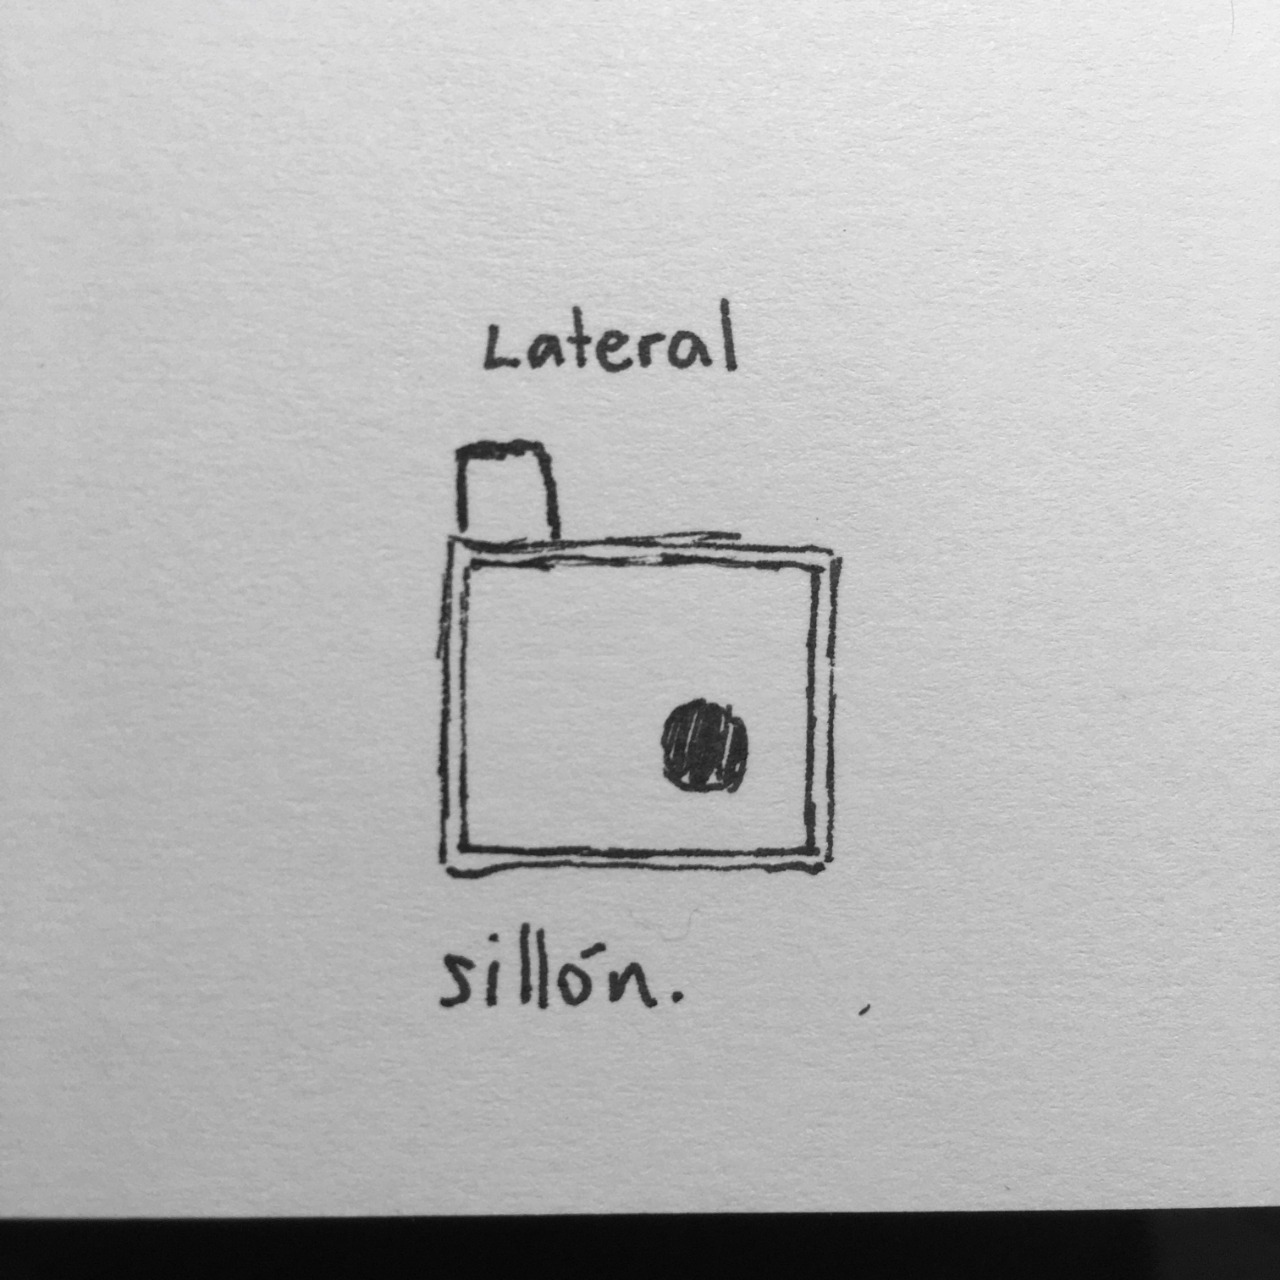 Lateral
sillón.